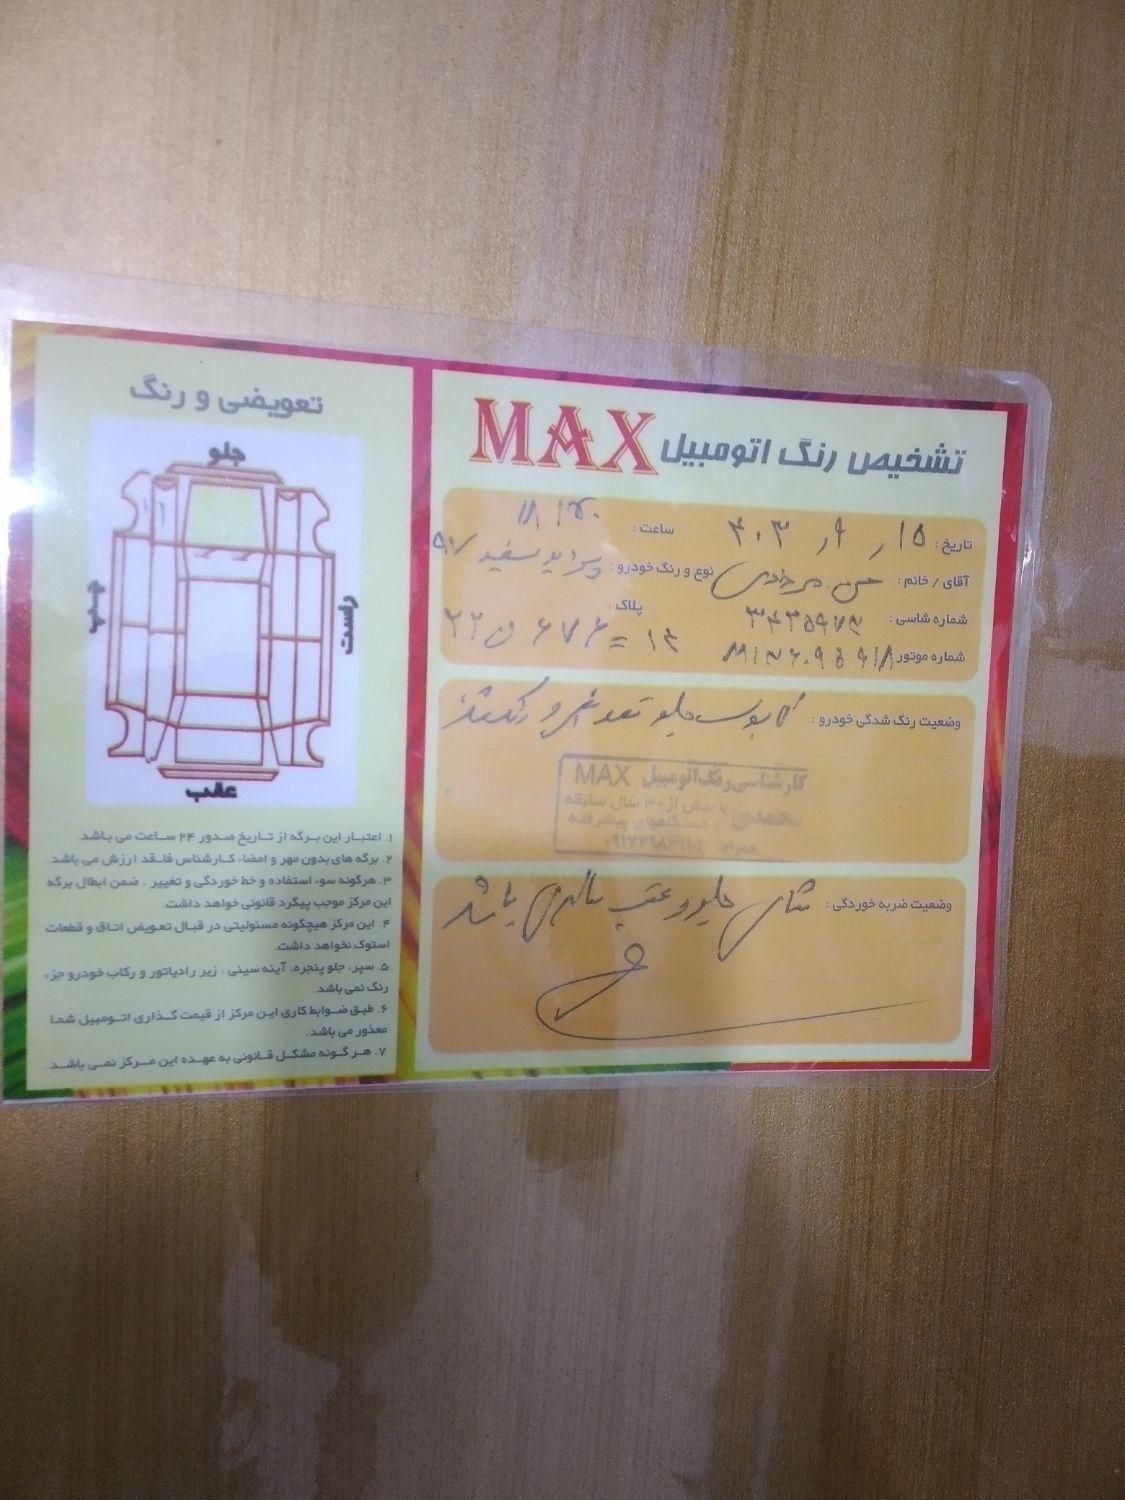 تشخیص رنگ اتومبیل MAX
تاریخ: ۱۵ / ۹ / ۴۰۳ ساعت:
آقای / خانم: حسن نوع و رنگ خودرو: پراید سفید ۹۷
شماره شاسی: پلاک:
شماره موتور
وضعیت رنگ شدگی خودرو: کاپوت جلو تعویض و رنگ شده
کارشناسی رنگ اتومبیل MAX
محمدی با بیش از ۳۰ سال سابقه
و دستگاههای پیشرفته
همراه:
وضعیت ضربه خوردگی: شاسی جلو و عقب سالم می باشد
تعویضی و رنگ
جلو
چپ
راست
عقب
۱. اعتبار این برگه از تاریخ صدور ۲۴ ساعت می باشد.
۲. برگه های بدون مهر و امضاء کارشناس فاقد ارزش می باشد.
۳. هرگونه سوء استفاده و خط خوردگی و تغییر ، ضمن ابطال برگه
این مرکز موجب پیگرد قانونی خواهد داشت.
۴. این مرکز هیچگونه مسئولیتی در قبال تعویض اتاق و قطعات
استوک نخواهد داشت.
۵. سپر، جلو پنجره، آینه سینی ، زیر رادیاتور و رکاب خودرو جزء
رنگ نمی باشد.
۶. طبق ضوابط کاری این مرکز از قیمت گذاری اتومبیل شما
معذور می باشد.
۷. هر گونه مشکل قانونی به عهده این مرکز نمی باشد.